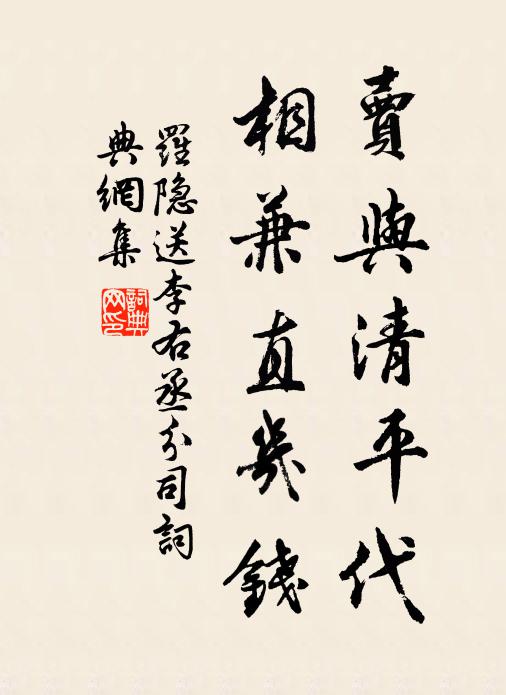 賣與清平代
相兼直幾錢
羅隐送李右丞分司詞
典網集
詞典網印